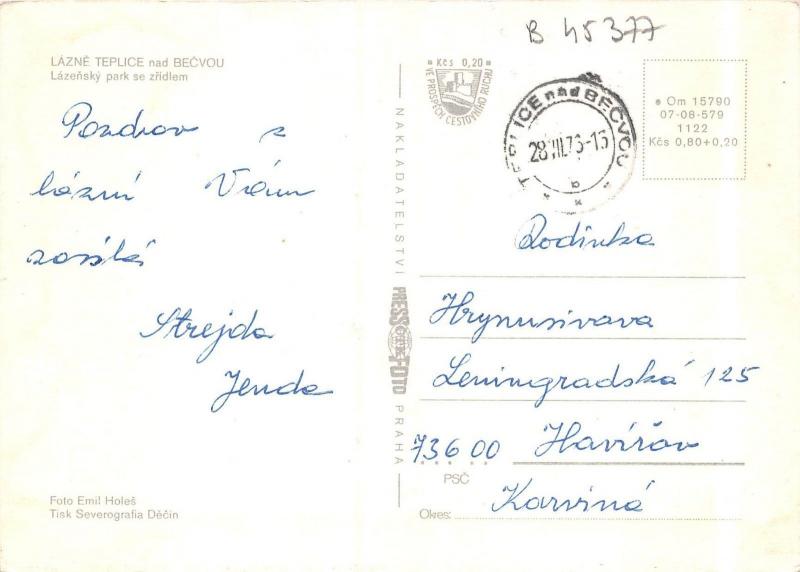 B 45377
LÁZNĚ TEPLICE nad BEČVOU
Lázeňský park se zřídlem
Pozdrav z
lázní Vám
zasílá
Strejda
Jenda
Foto Emil Holeš
Tisk Severografia Děčín
Kčs 0,20
VE PROSPĚCH CESTOVNÍHO RUCHU
NAKLADATELSTVÍ PRESSFOTO PRAHA
TEPLICE nad BEČVOU
28.VII.76-15
b
Om 15790
07-08-579
1122
Kčs 0,80+0,20
Rodinka
Hrynusivava
Leningradská 125
73600 Havířov
PSČ
Karviná
Okres: